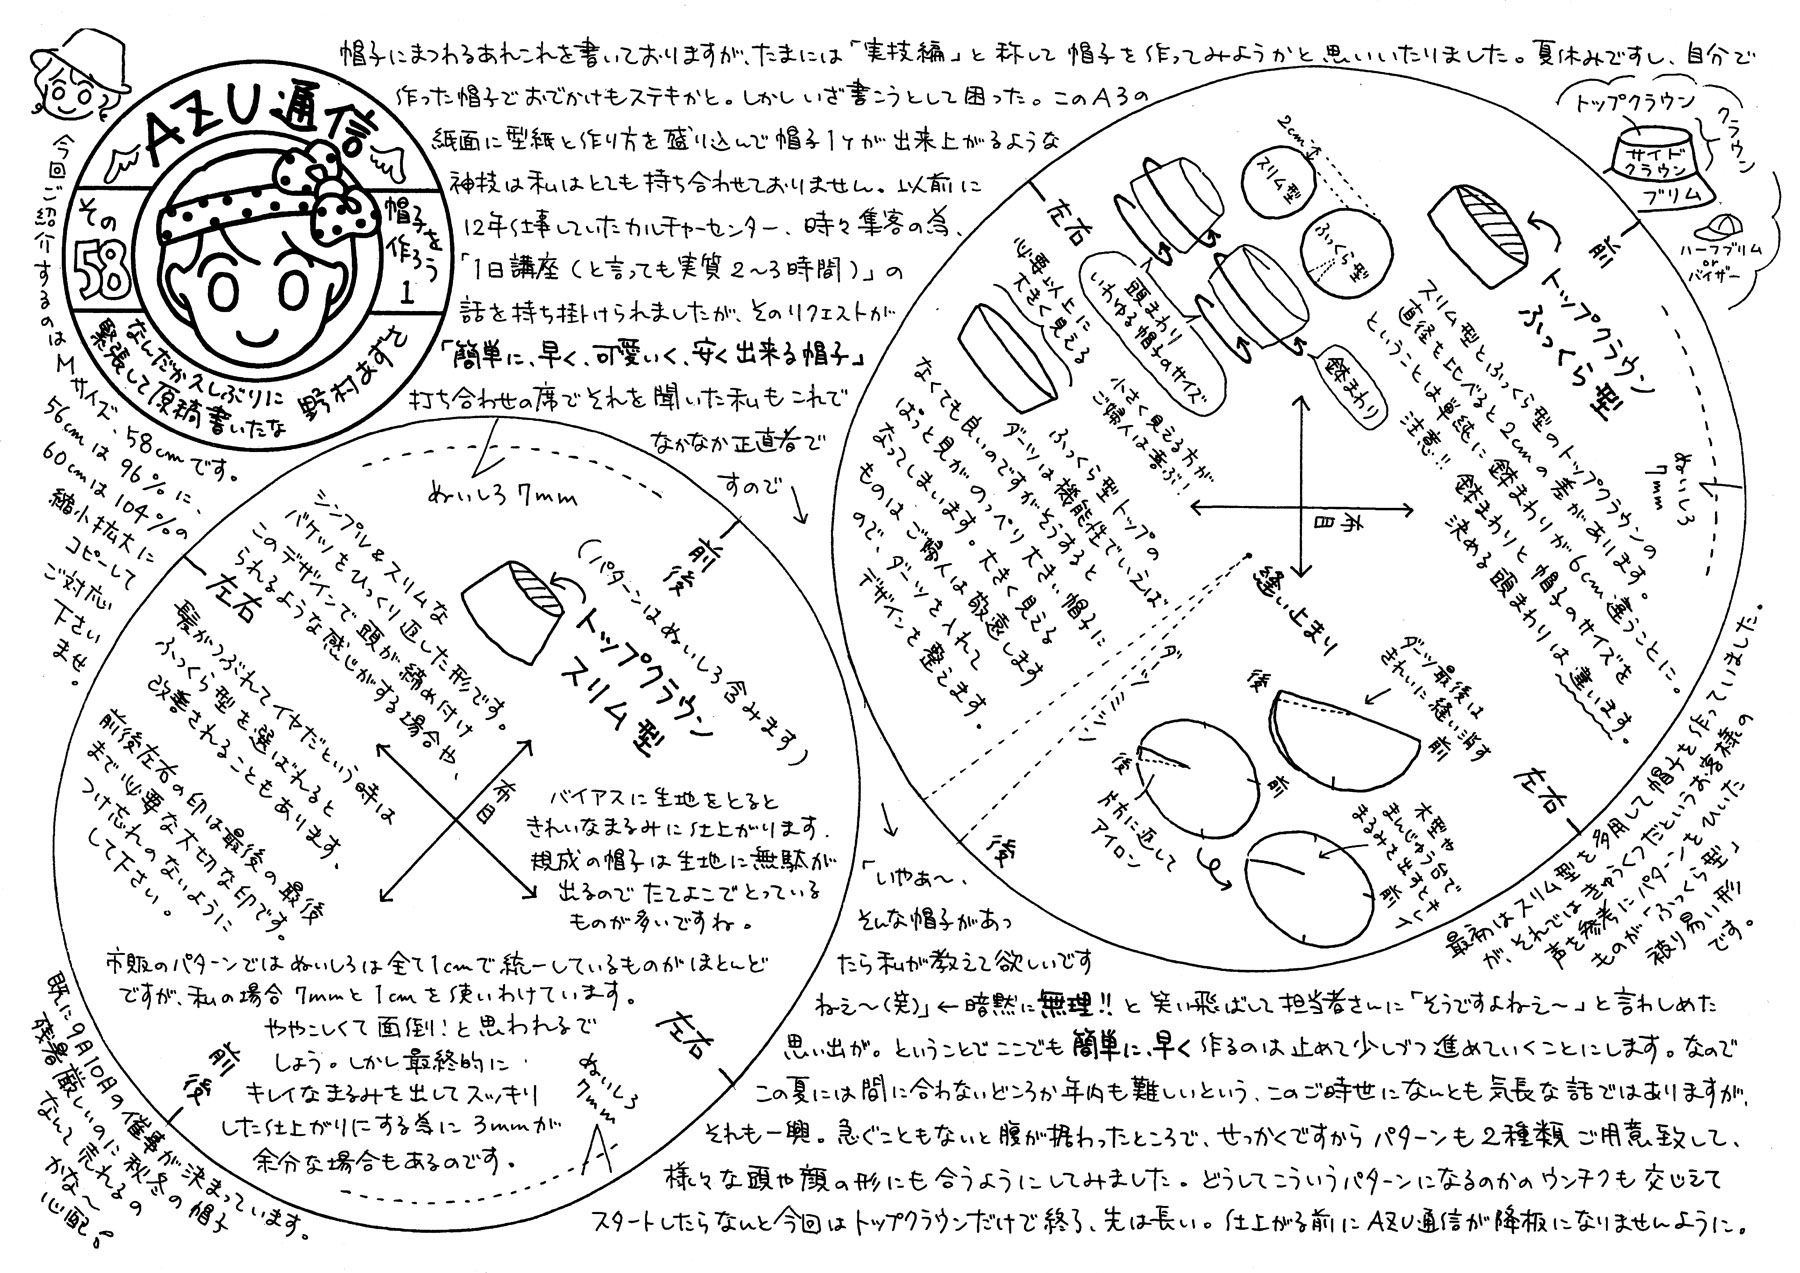 AZU通信
その
58
帽子を
作ろう
1
なんだか久しぶりに
緊張して原稿書いたな
野村あずさ
今回ご紹介するのはMサイズ、58cmです。
56cmは96%に、
60cmは104%の
縮小拡大に
コピーして
ご対応
下さい
ませ。
帽子にまつわるあれこれを書いておりますが、たまには「実技編」と称して帽子を作ってみようかと思いいたりました。夏休みですし、自分で
作った帽子でおでかけもステキかと。しかしいざ書こうとして困った。このA3の
紙面に型紙と作り方を盛り込んで帽子1ヶが出来上がるような
神技は私はとても持ち合わせておりません。以前に
12年仕事していたカルチャーセンター、時々集客の為、
「1日講座(と言っても実質2〜3時間)」の
話を持ち掛けられましたが、そのリクエストが
「簡単に、早く、可愛いく、安く出来る帽子」
打ち合わせの席でそれを聞いた私もこれで
なかなか正直者で
すので
「いやぁ〜、
そんな帽子があっ
たら私が教えて欲しいです
ねぇ〜(笑)」←暗黙に無理!!と笑い飛ばして担当者さんに「そうですよねぇ〜」と言わしめた
思い出が。ということでここでも簡単に、早く作るのは止めて少しづつ進めていくことにします。なので
この夏には間に合わないどころか年内も難しいという、このご時世になんとも気長な話ではありますが、
それも一興。急ぐこともないと腹が据わったところで、せっかくですからパターンも2種類ご用意致して、
様々な頭や顔の形にも合うようにしてみました。どうしてこういうパターンになるのかのウンチクも交じえて
スタートしたらなんと今回はトップクラウンだけで終了、先は長い。仕上がる前にAZU通信が降板になりませんように。
トップクラウン
クラウン
サイド
クラウン
ブリム
ハーフブリム
or
バイザー
前
トップクラウン
ふっくら型
左右
2cm
スリム型
ふっくら型
頭まわり
いわゆる帽子のサイズ
鉢まわり
必要以上に
大きく見える
小さく見える方が
ご婦人は喜ぶ!!
スリム型とふっくら型のトップクラウンの
直径を比べると2cmの差があります。
ということは単純に鉢まわりが6cm違うことに。
注意!! 鉢まわりと帽子のサイズを
決める頭まわりは違います。
ふっくら型トップの
ダーツは機能性でいえば
なくても良いのですがそうすると
ぱっと見がのっぺり大きい帽子に
なってしまいます。大きく見える
ものはご婦人は敬遠します
ので、ダーツを入れて
デザインを整えます。
布目
ぬいしろ
7mm
縫い止まり
ダーツ
後
左右
ダーツ最後は
きれいに縫い消す
後
前
後
前
片方に返して
アイロン
木型や
まんじゅう台で
まるみを出すとキレイ
前
最初はスリム型を多用して帽子を作っていました。
が、それではきゅうくつだというお客様の
声を参考にパターンをひいた
ものが「ふっくら型」
被り易い形
です。
ぬいしろ7mm
前
後
(パターンはぬいしろ含みます)
トップクラウン
スリム型
左右
シンプル&スリムな
バケツをひっくり返した形です。
このデザインで頭が締め付け
られるような感じがする場合や、
髪がつぶれてイヤだという時は
ふっくら型を選ばれると
改善されることもあります、
前後左右の印は最後の最後
まで必要な大切な印です。
つけ忘れのないように
して下さい。
布目
バイアスに生地をとると
きれいなまるみに仕上がります。
規成の帽子は生地に無駄が
出るのでたてよこでとっている
ものが多いですね。
市販のパターンではぬいしろは全て1cmで統一しているものがほとんど
ですが、私の場合7mmと1cmを使いわけています。
ややこしくて面倒!と思われるで
しょう。しかし最終的に
キレイなまるみを出してスッキリ
した仕上がりにする為に3mmが
余分な場合もあるのです。
左右
ぬいしろ
7mm
前
後
既に9月10月の催事が決まっています。
残暑厳しいのに秋冬の帽子
なんて売れるの
かな〜
心配。